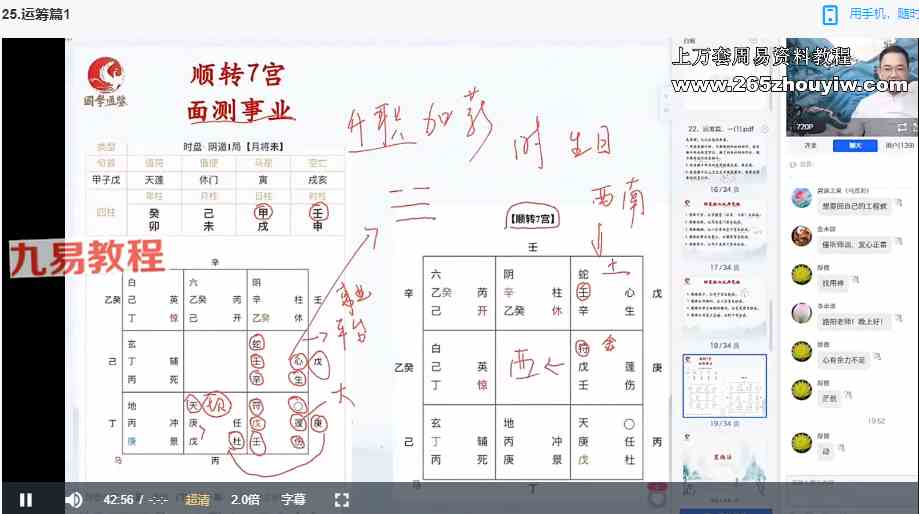 25.运筹篇1
用手机，随时
上万套周易资料教程
www.265zhouyiw.com
720P
國學通鑒
顺转7宫
面测事业
类型 时盘 阴遁1局【月将未】
旬首 值符 值使 马星 空亡
甲子戊 天蓬 休门 寅 戌亥
年柱 月柱 日柱 时柱
四柱 癸 己 甲 壬
卯 未 戌 申
九易教程
辛
白 六 阴
乙癸 己 英 乙癸 芮 辛 柱 壬
丁 惊 己 开 乙癸 休
玄 蛇
己 丁 辅 壬 心 戊
丙 死 辛 生
地 天 符 〇
丁 丙 冲 庚 任 戊 蓬 庚
庚 景 戊 杜 壬 伤
马 丙
升职加薪
时 生日
西南
土
事业
平台
大
西
金
【顺转7宫】
壬
六 阴 蛇
辛 乙癸 芮 辛 柱 壬 心 戊
己 开 乙癸 休 辛 生
白 符
乙癸 己 英 戊 蓬 庚
丁 惊 壬 伤
玄 地 天 〇
己 丁 辅 丙 冲 庚 任 丙
丙 死 庚 景 戊 杜
马 丁
22、运筹篇、一(1).pdf
16/34 页
17/34 页
18/34 页
19/34 页
聊天
用户(139)
想要回自己的工程款
催听师说，发心正善
找用神
路阳老师！晚上好！
心有余力不足
茫然
19:52
动
42:56 / -:-
超清
2.0倍
字幕